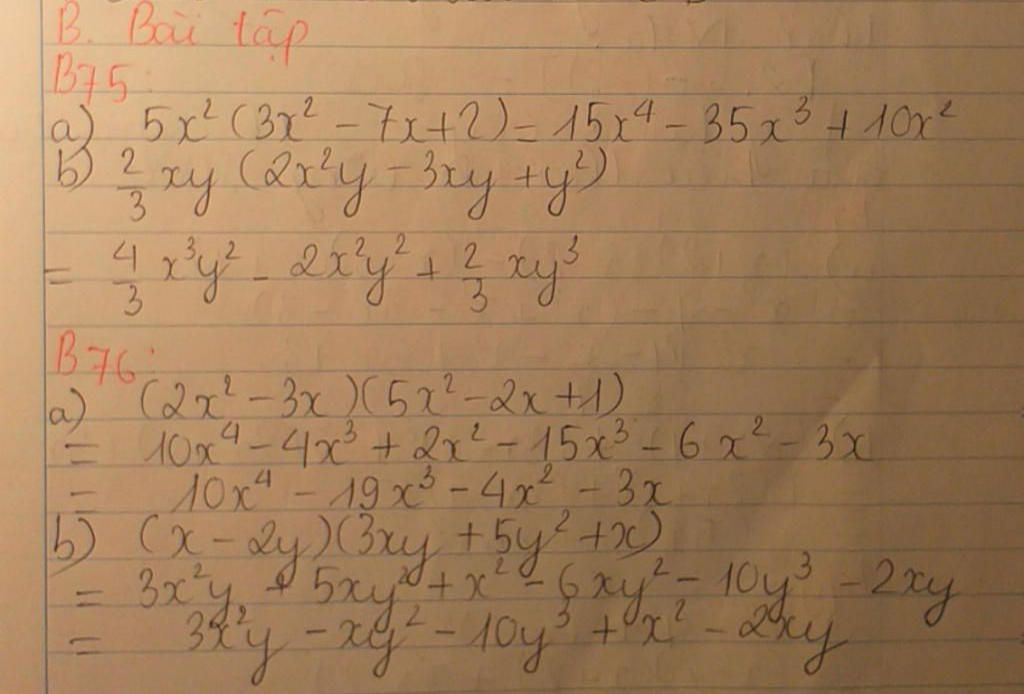 B. Bài tập
B75:
a) 5x² (3x² - 7x + 2) = 15x⁴ - 35x³ + 10x²
b) 2/3 xy (2x²y - 3xy + y²)
= 4/3 x³y² - 2x²y² + 2/3 xy³
B76:
a) (2x² - 3x)(5x² - 2x + 1)
= 10x⁴ - 4x³ + 2x² - 15x³ - 6x² - 3x
= 10x⁴ - 19x³ - 4x² - 3x
b) (x - 2y)(3xy + 5y² + x)
= 3x²y + 5xy² + x² - 6xy² - 10y³ - 2xy
= 3x²y - xy² - 10y³ + x² - 2xy